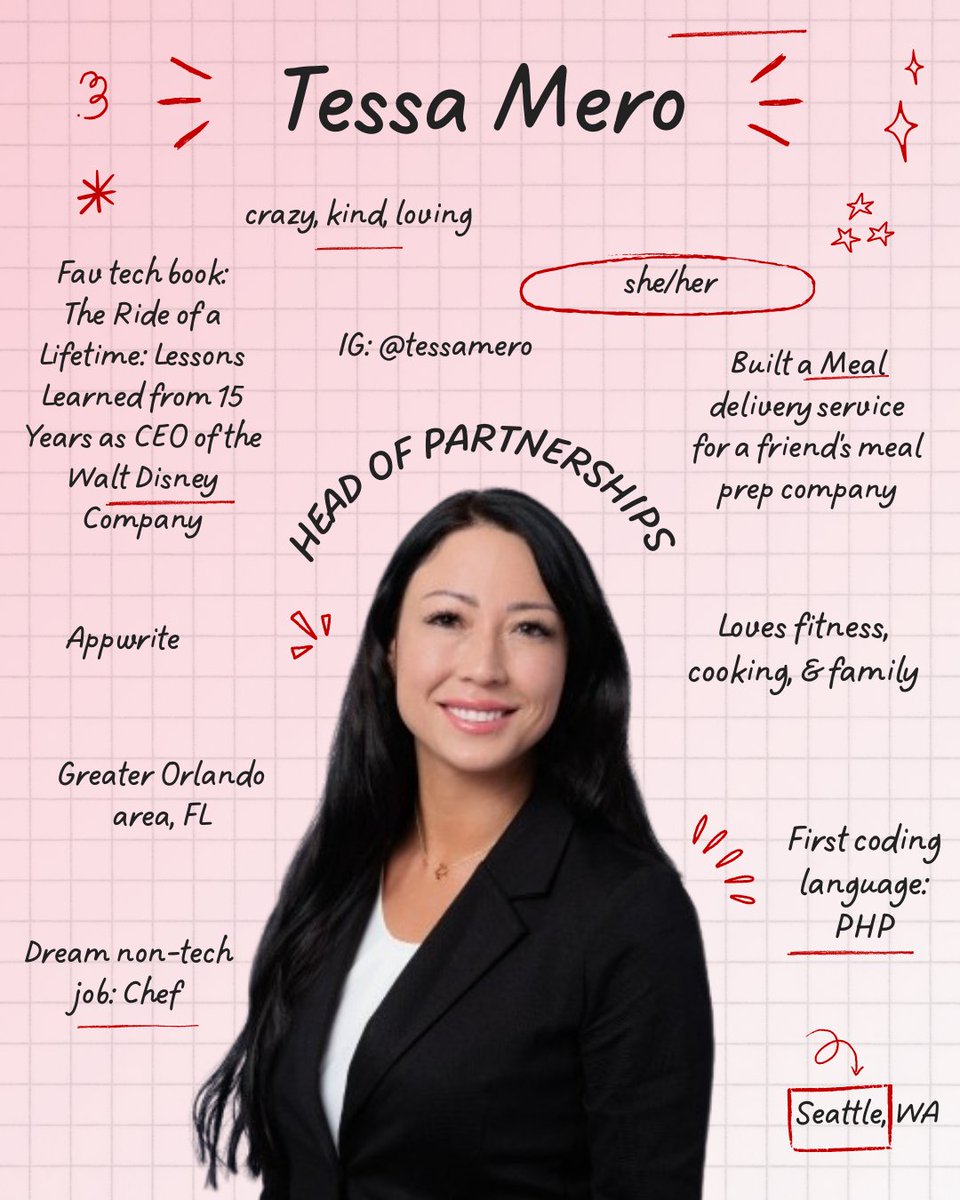 Tessa Mero
crazy, kind, loving
she/her
Fav tech book:
The Ride of a
Lifetime: Lessons
Learned from 15
Years as CEO of the
Walt Disney
Company
IG: @tessamero
Built a Meal
delivery service
for a friend's meal
prep company
HEAD OF PARTNERSHIPS
Appwrite
Loves fitness,
cooking, & family
Greater Orlando
area, FL
First coding
language:
PHP
Dream non-tech
job: Chef
Seattle, WA